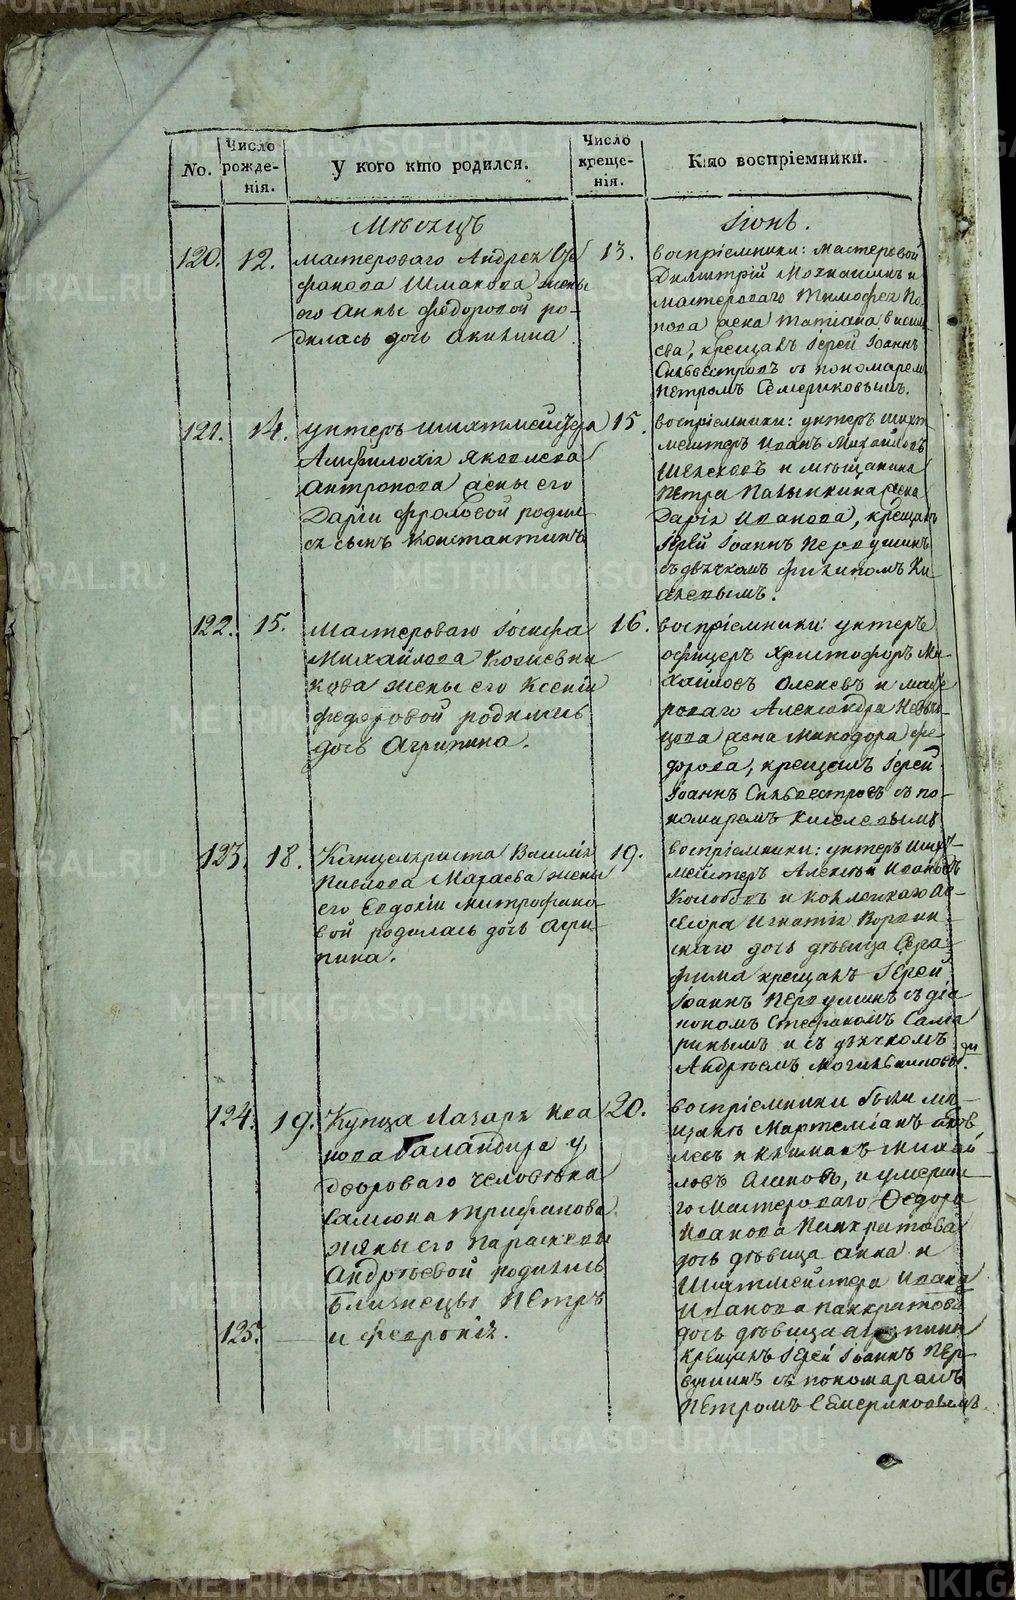 No.
Число рожде-нія.
У кого кто родился.
Число креще-нія.
Кто воспріемники.
Мѣсяцъ
Іюнь.
120.
12.
мастероваго Андрея Сте
фанова Шмакова жены
его Анны Федоровой ро-
дилась дочь Акилина
13.
воспріемники: мастеровой
Димитрій и
мастероваго Тимофея По-
пова жена Татіана Василь
ева, крещалъ Іерей Іоаннъ
Сильвестровъ съ пономаремъ
Петромъ Семериковымъ.
121.
14.
унтеръ шихтмейстера
Амфилохія Яковлева
Антропова жены его
Даріи Фроловой родил-
ся сынъ Константинъ
15.
воспріемники: унтеръ шихт
мейстеръ Иванъ Михайловъ
и мѣщанина
Петра жена
Дарія Иванова, крещалъ
Іерей Іоаннъ Первушинъ
съ дьячкомъ Филипомъ Ки-
122.
15.
Мастероваго Іосифа
Михайлова Кожевни
кова жены его Ксеніи
Федоровой родилась
дочь Агрипина.
16.
воспріемники: унтеръ
офицеръ Христофоръ Ми-
хайловъ и масте
роваго Александра
жена Минодора Фе-
дорова, крещалъ Іерей
Іоаннъ Сильвестровъ съ по-
номаремъ Киселевымъ
123.
18.
Канцеляриста Василія
Павлова жены
его Евдокіи Митрофано-
вой родилась дочь Агри-
пина.
19.
воспріемники: унтеръ шихт-
мейстеръ Алексѣй Ивановъ
и коллежкаго Ас-
сесора Игнатія
дочь дѣвица Сера-
фима крещалъ Іерей
Іоаннъ Первушинъ съ діа
кономъ Стефаномъ
и съ дьячкомъ
Андрѣемъ
124.
19.
Купца Лазаря Ива
нова Баландина у
двороваго человѣка
Самсона Трифанова
жены его Парасковьи
Андрѣевой родились
близнецы Петръ
20.
воспріемники были мѣ-
щанъ Мартеміанъ Яков
левъ и Михай-
ловъ и умерша-
го мастероваго Федора
Иванова Панкратова
дочь дѣвица Анна и
Шихтмейстера Ивана
Иванова Панкратова
дочь дѣвица Агрипина
крещалъ Іерей Іоаннъ Пер-
вушинъ съ пономаремъ
Петромъ Семериковымъ
125.
и Февронія.
METRIKI.GASO-URAL.RU